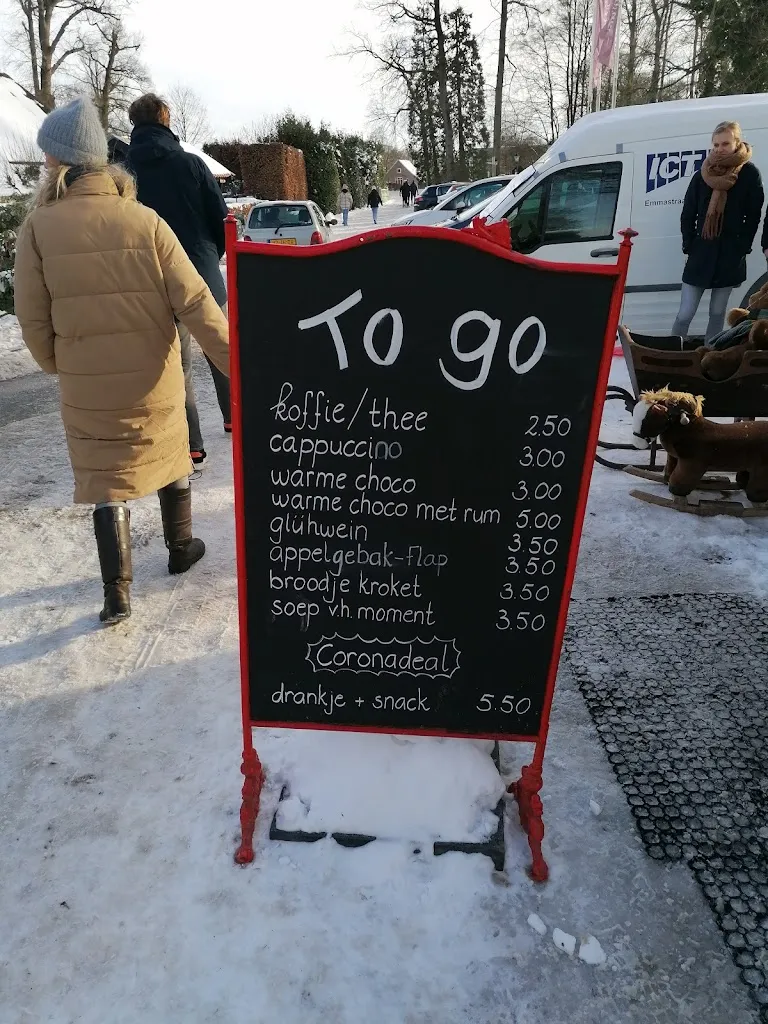 To go
koffie/thee 2.50
cappuccino 3.00
warme choco 3.00
warme choco met rum 5.00
glühwein 3.50
appelgebak-flap 3.50
broodje kroket 3.50
soep v.h. moment 3.50
Coronadeal
drankje + snack 5.50
ICT